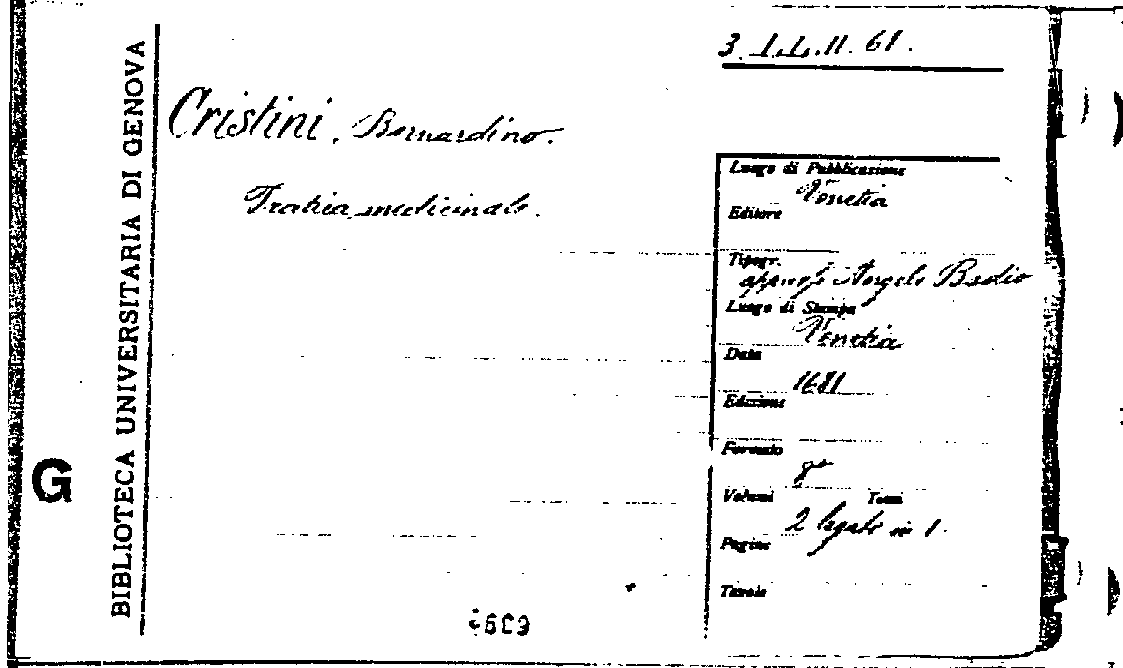 BIBLIOTECA UNIVERSITARIA DI GENOVA
G
3. I.L.II. 61.
Cristini, Bernardino.
medicinale.
Luogo di Pubblicazione
Venetia
Editore
Tipogr.
appresso Angelo Bodio
Luogo di Stampa
Venetia
Data
1681
Edizione
Formato
8°
Volumi Tomi
2 legati in 1.
Pagine
Tavole